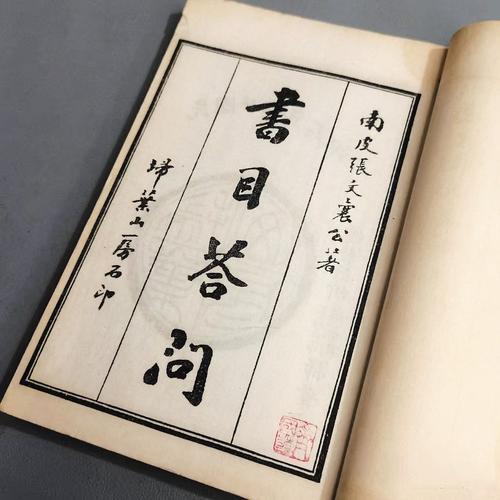 南皮張文襄公著
書目答問
埽葉山房石印